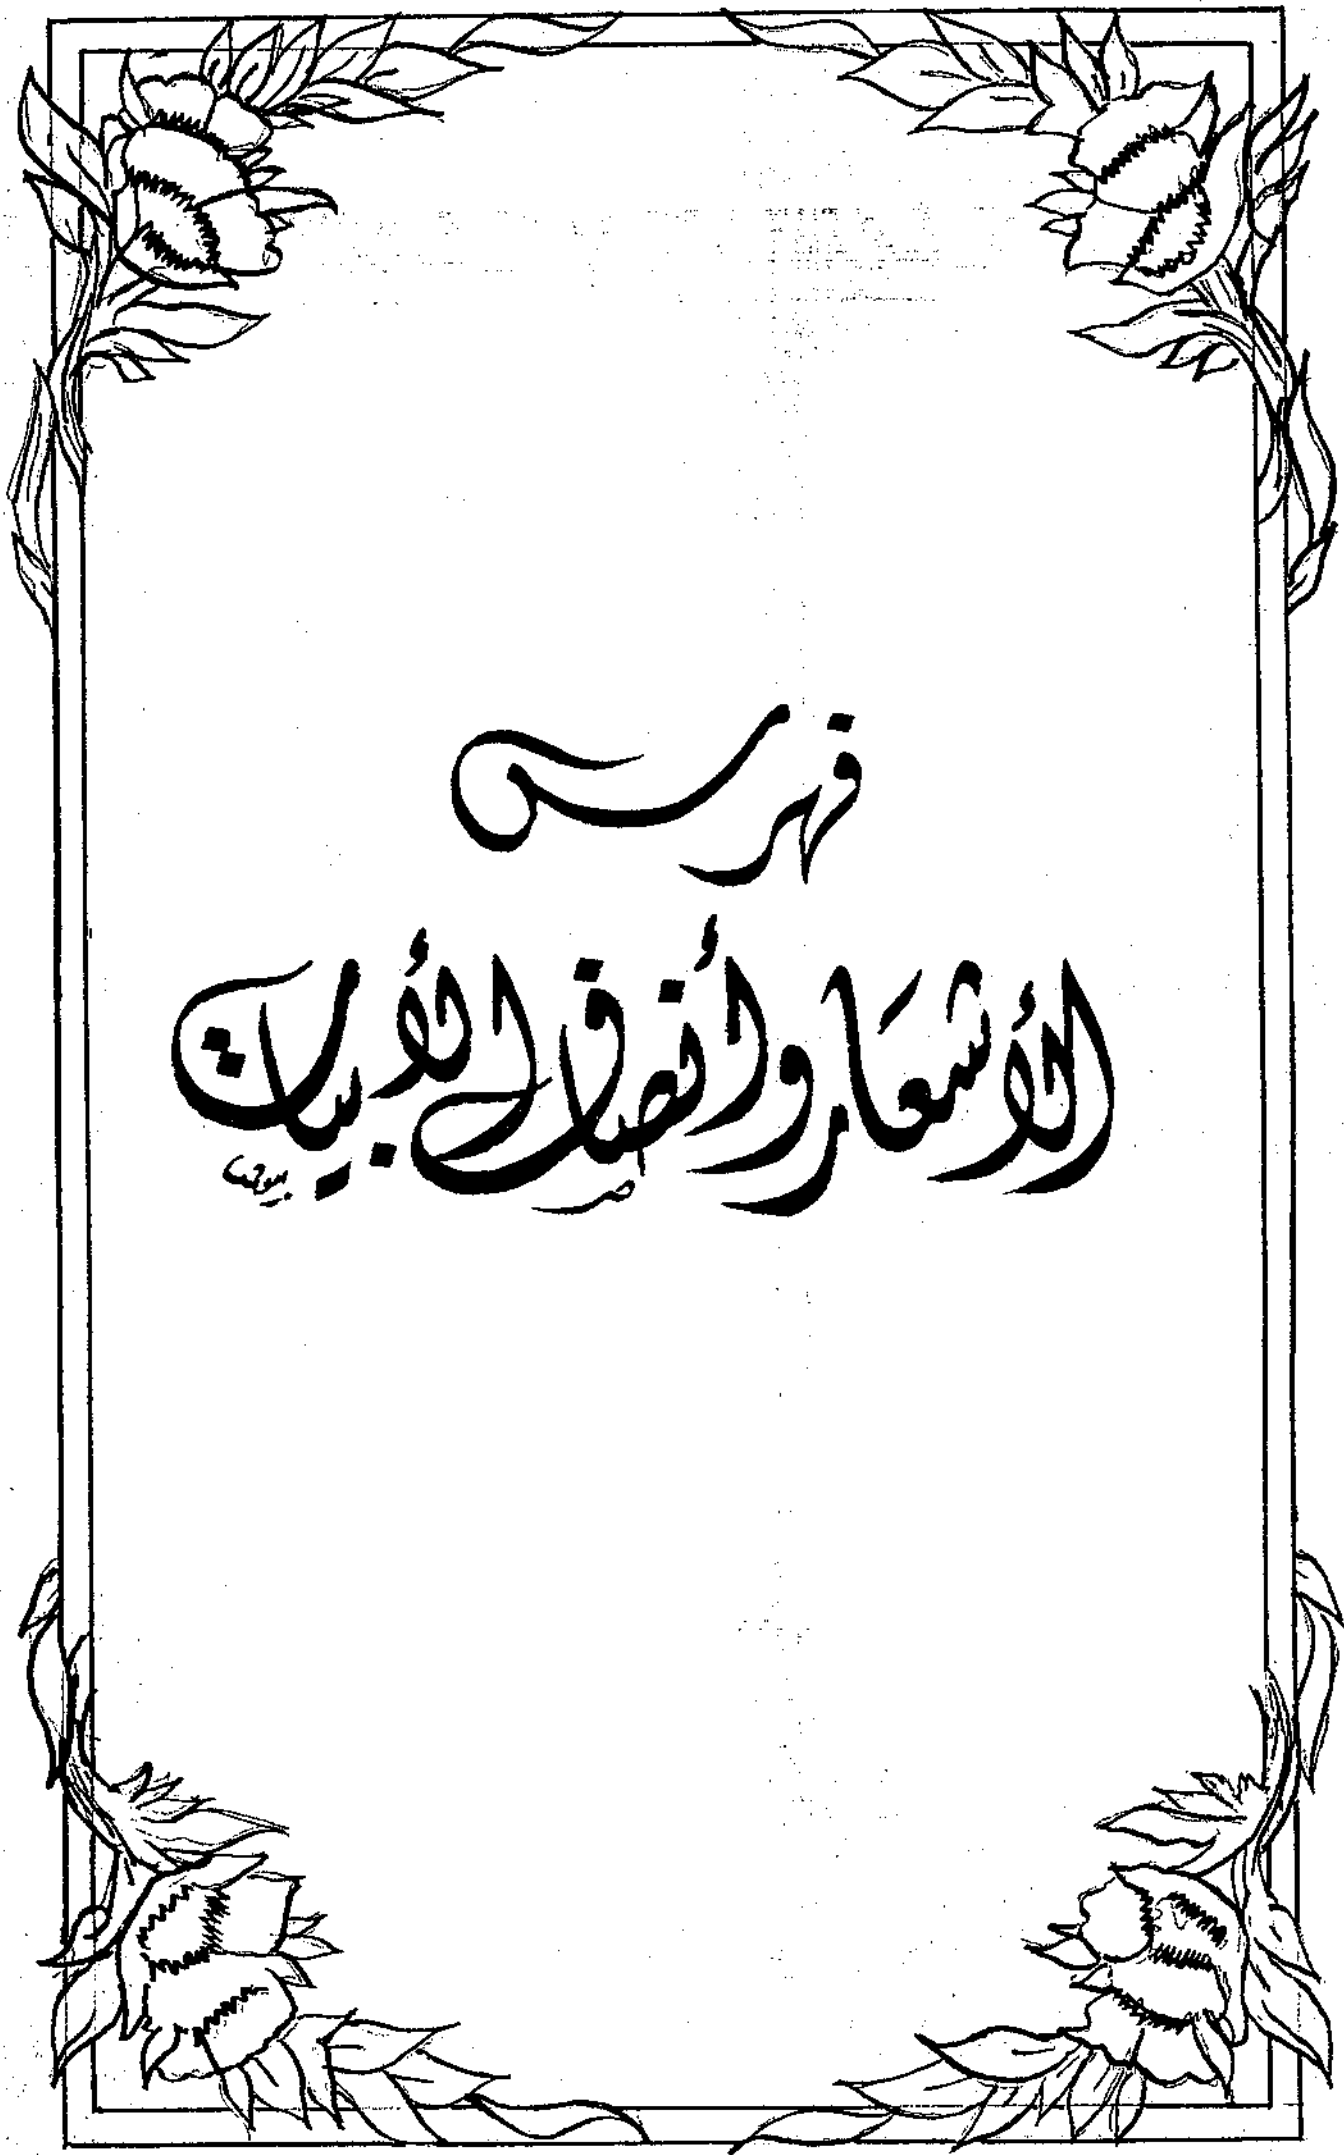 فهرس
الأشعَار وأنصاف الأبيات